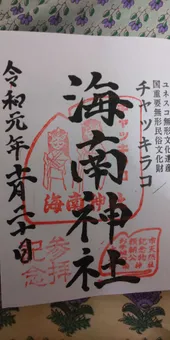 ユネスコ無形文化遺産
国重要無形民俗文化財
チャッキラコ
海南神社
令和元年
チャッキラコ
海南神社
参拝
記念